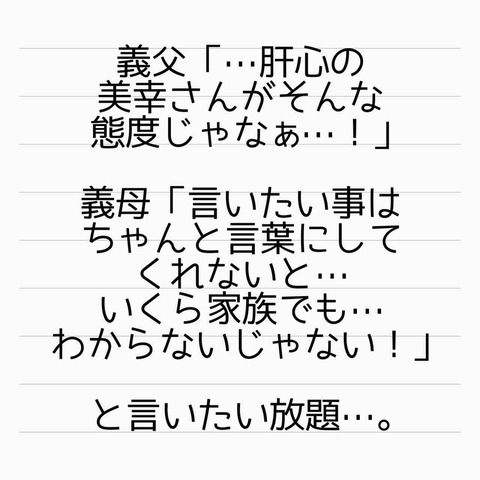 義父「…肝心の
美幸さんがそんな
態度じゃなぁ…！」
義母「言いたい事は
ちゃんと言葉にして
くれないと…
いくら家族でも…
わからないじゃない！」
と言いたい放題…。